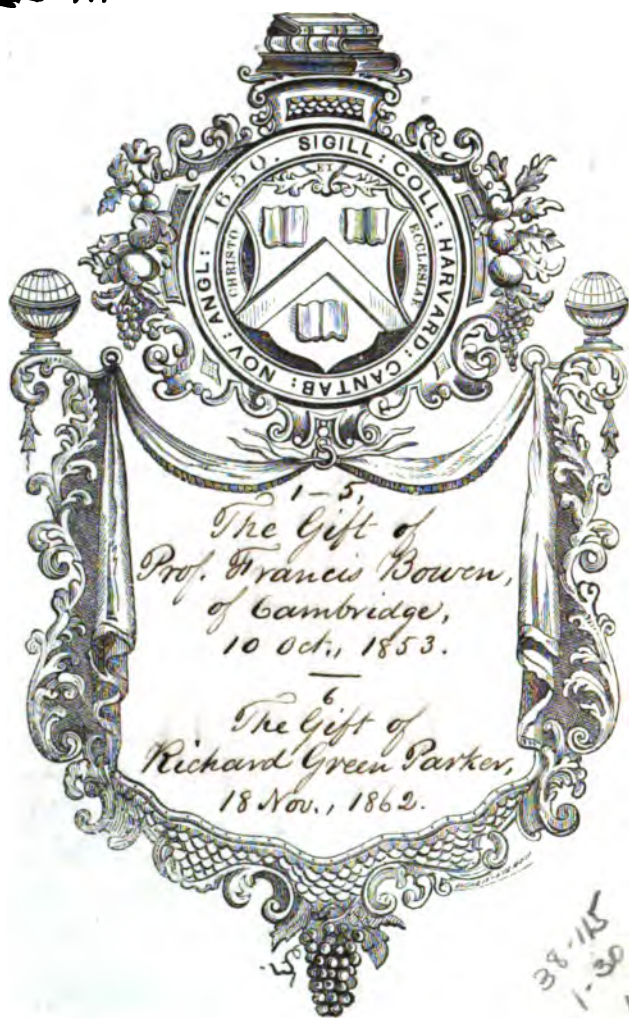 SIGILL: COLL: HARVARD: CANTAB: NOV: ANGL: 1650.
ET
CHRISTO
ECCLESIAE
1-5,
The Gift of
Prof. Francis Bowen,
of Cambridge,
10 Oct., 1853.
6
The Gift of
Richard Green Parker,
18 Nov., 1862.
38-115
1-30